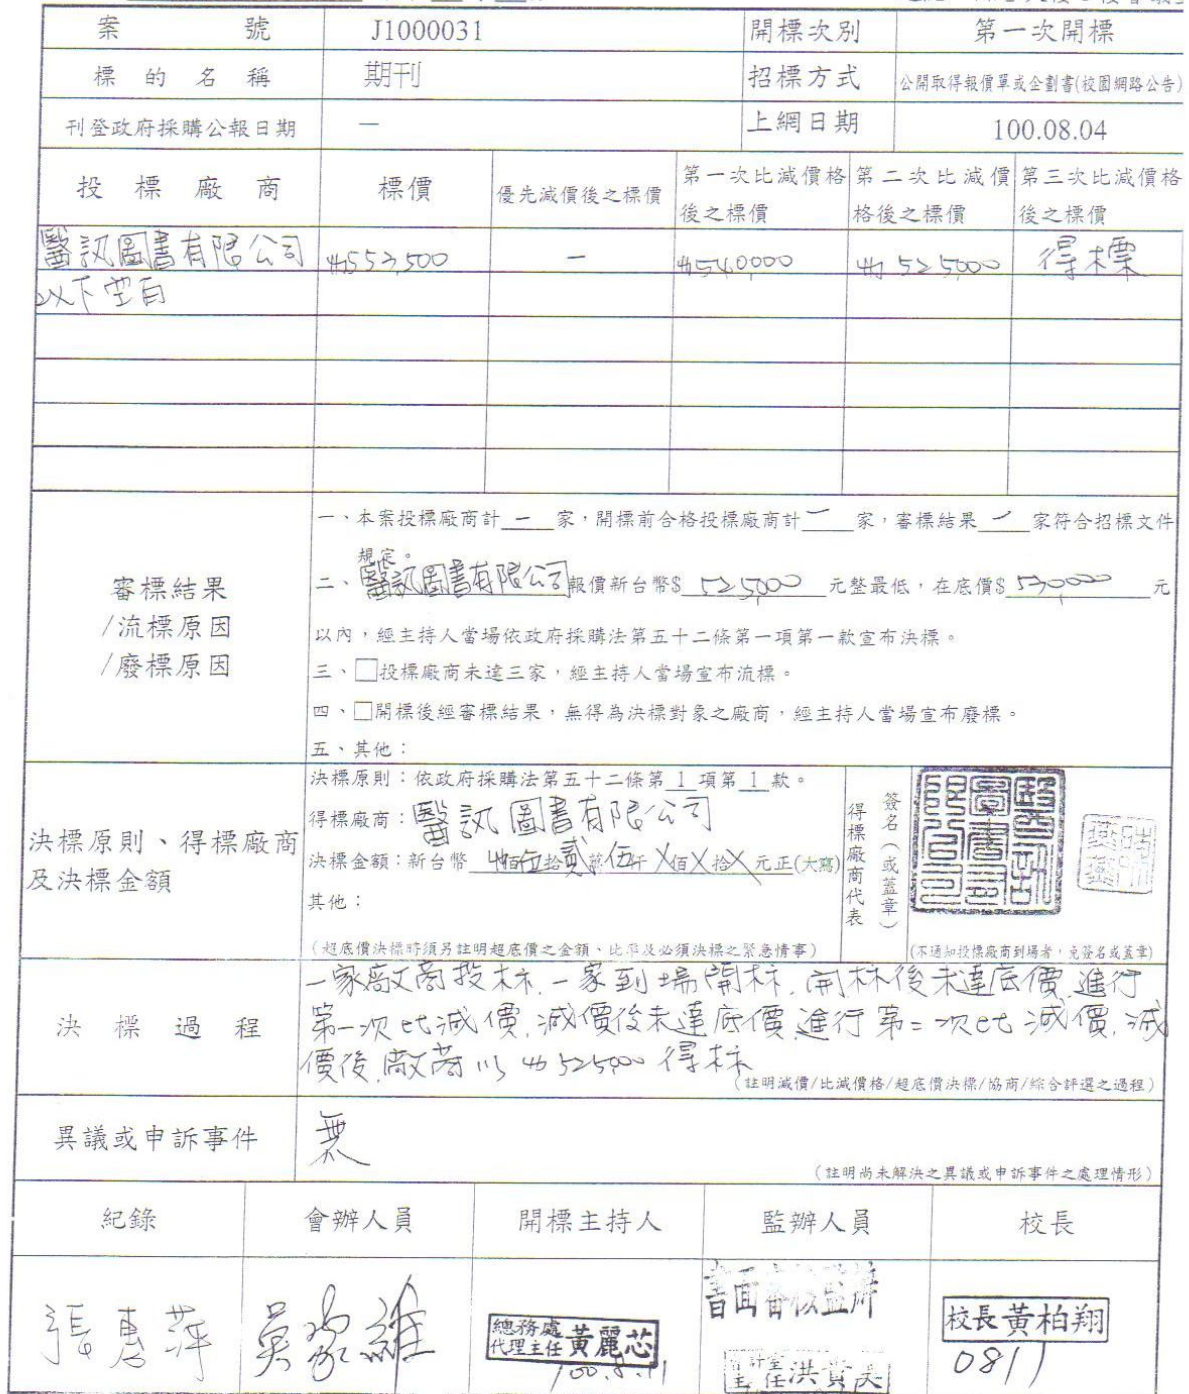 案號 J1000031 開標次別 第一次開標
標的名稱 期刊 招標方式 公開取得報價單或企劃書(校園網路公告)
刊登政府採購公報日期 — 上網日期 100.08.04
投標廠商 標價 優先減價後之標價 第一次比減價格後之標價 第二次比減價格後之標價 第三次比減價格後之標價
醫訊圖書有限公司 $552,500 — $540,000 $525,000 得標
以下空白
審標結果
/流標原因
/廢標原因
一、本案投標廠商計 一 家,開標前合格投標廠商計 一 家,審標結果 一 家符合招標文件
規定。
二、醫訊圖書有限公司報價新台幣$ 525,000 元整最低,在底價$ 530,000 元
以內,經主持人當場依政府採購法第五十二條第一項第一款宣布決標。
三、□投標廠商未達三家,經主持人當場宣布流標。
四、□開標後經審標結果,無得為決標對象之廠商,經主持人當場宣布廢標。
五、其他:
決標原則、得標廠商
及決標金額
決標原則:依政府採購法第五十二條第 1 項第 1 款。
得標廠商:醫訊圖書有限公司
決標金額:新台幣 佰伍拾貳萬伍仟X佰X拾X元正(大寫)
其他:
(超底價決標時須另註明超底價之金額、比率及必須決標之緊急情事)
得標廠商代表
簽名(或蓋章)
醫訊圖書有限公司
(不通知投標廠商到場者,免簽名或蓋章)
決標過程
一家廠商投标,一家到場開标,開标後未達底價,進行
第一次比減價,減價後未達底價,進行第二次比減價,減
價後,廠商以$525,000得标
(註明減價/比減價格/超底價決標/協商/綜合評選之過程)
異議或申訴事件 無
(註明尚未解決之異議或申訴事件之處理情形)
紀錄 會辦人員 開標主持人 監辦人員 校長
張惠萍
總務處
代理主任 黃麗芯
100.8.11
書面審核監辦
主任洪
校長黃柏翔
0811